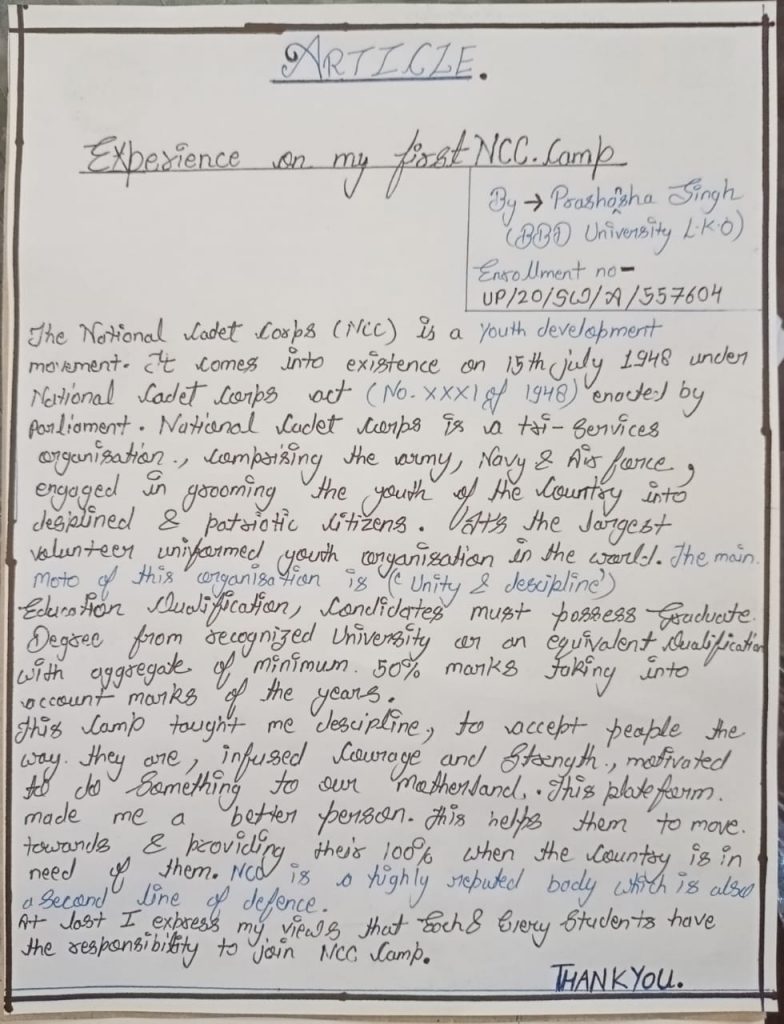 ARTICLE.
Experience on my first NCC. Camp
By → Prashasha Singh
(BBD University L.K.O)
Enrollment no-
UP/20/SW/A/557604
The National Cadet Corps (NCC) is a youth development
movement. It comes into existence on 15th july 1948 under
National Cadet Corps act (No. XXXI of 1948) enacted by
Parliament. National Cadet Corps is a tri- Services
organisation., comprising the army, Navy & Air force,
engaged in grooming the youth of the Country into
desiplined & patriotic citizens. It's the largest
volunteer uniformed youth organisation in the world. The main
moto of this organisation is (‘Unity & descipline’)
Education Qualification, Candidates must possess Graduate
Degree from recognized University or an equivalent Qualification
with aggregate of minimum. 50% marks taking into
account marks of the years.
This Camp taught me descipline, to accept people the
way. they are, infused Courage and Strength., motivated
to do Something to our Motherland.. This plateform.
made me a better person. This helps them to move.
towards & providing their 100% when the Country is in
need of them. Ncc is a highly reputed body which is also
a Second line of defence.
At last I express my views that Each & Every Students have
the responsibility to join NCC Camp.
THANKYOU.